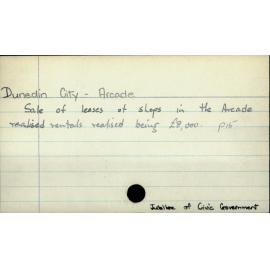 Dunedin City - Arcade
Sale of leases of shops in the Arcade
realised rentals realised being £8,000. p15
Jubilee of Civic Government